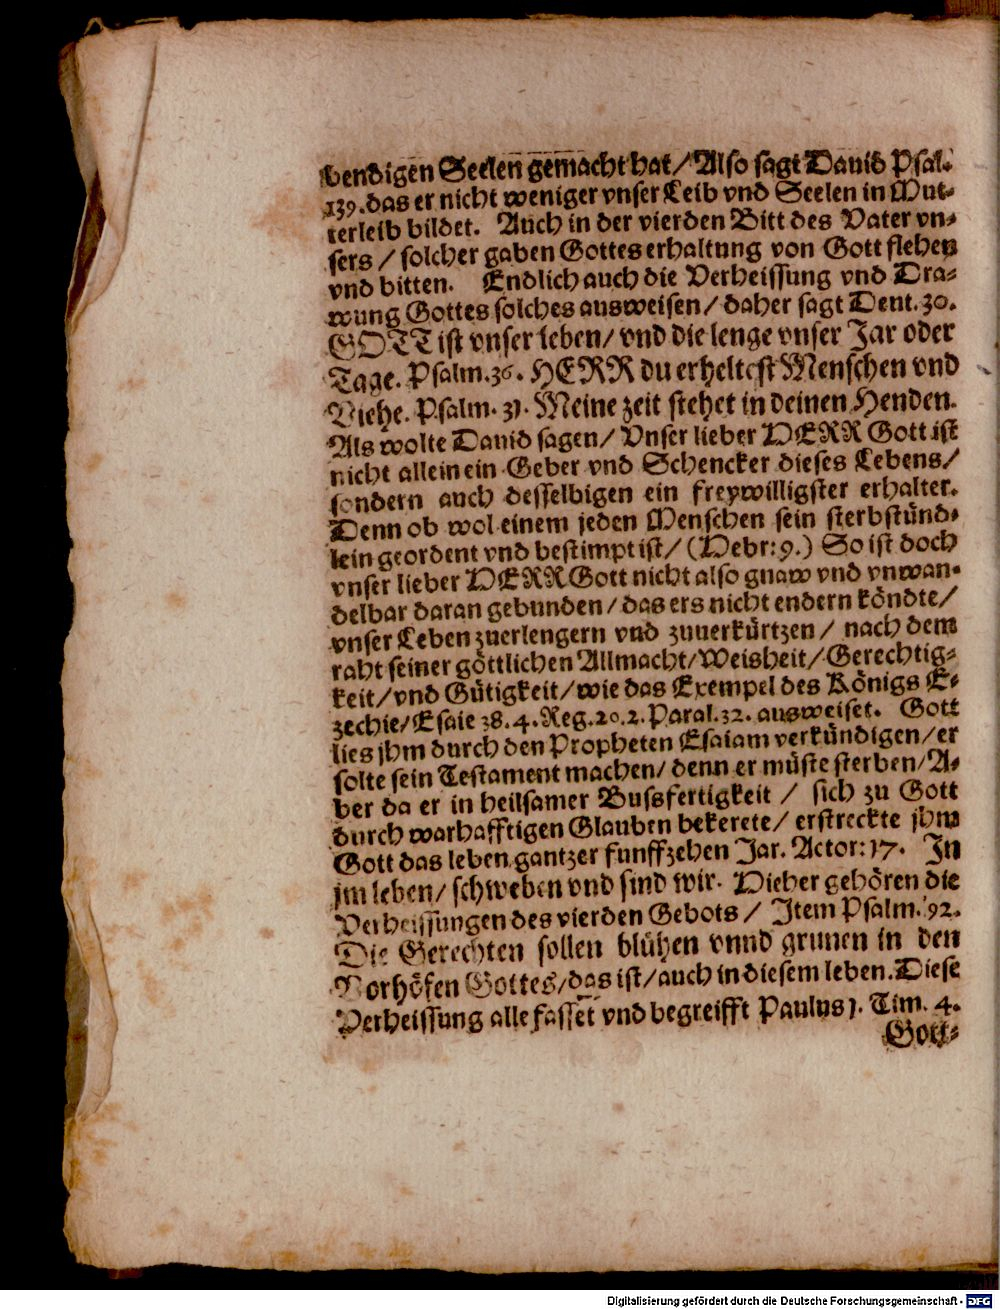 bendigen Seelen gemacht hat / Also sagt Dauid Psal.
139. das er nicht weniger vnser Leib vnd Seelen in Mut-
terleib bildet. Auch in der vierden Bitt des Vater vn-
sers / solcher gaben Gottes erhaltung von Gott flehen
vnd bitten. Endlich auch die Verheissung vnd Dra-
wung Gottes solches ausweisen / daher sagt Deut. 30.
GOTT ist vnser leben / vnd die lenge vnser Jar oder
Tage. Psalm. 36. HERR du erheltest Menschen vnd
Viehe. Psalm. 31. Meine zeit stehet in deinen Henden.
Als wolte Dauid sagen / Vnser lieber HERR Gott ist
nicht allein ein Geber vnd Schencker dieses Lebens /
sondern auch desselbigen ein freywilligster erhalter.
Denn ob wol einem jeden Menschen sein sterbstünd-
lein geordent vnd bestimpt ist / (Hebr: 9.) So ist doch
vnser lieber HERR Gott nicht also gnaw vnd vnwan-
delbar daran gebunden / das ers nicht endern köndte /
vnser Leben zuerlengern vnd zuuerkürtzen / nach dem
raht seiner göttlichen Allmacht / Weisheit / Gerechtig-
keit / vnd Gütigkeit / wie das Exempel des Königs E-
zechie / Esaie 38. 4. Reg. 20. 2. Paral. 32. ausweiset. Gott
lies jhm durch den Propheten Esaiam verkündigen / er
solte sein Testament machen / denn er müste sterben / A-
ber da er in heilsamer Bussfertigkeit / sich zu Gott
durch warhafftigen Glauben bekerete / erstreckte jhm
Gott das leben gantzer funffzehen Jar. Actor: 17. In
jm leben / schweben vnd sind wir. Hieher gehören die
Verheissungen des vierden Gebots / Item Psalm. 92.
Die Gerechten sollen blühen vnnd grunen in den
Vorhöfen Gottes / das ist / auch in diesem leben. Diese
Verheissung alle fasset vnd begreifft Paulus 1. Tim. 4.
Gott-
Digitalisierung gefördert durch die Deutsche Forschungsgemeinschaft - DFG